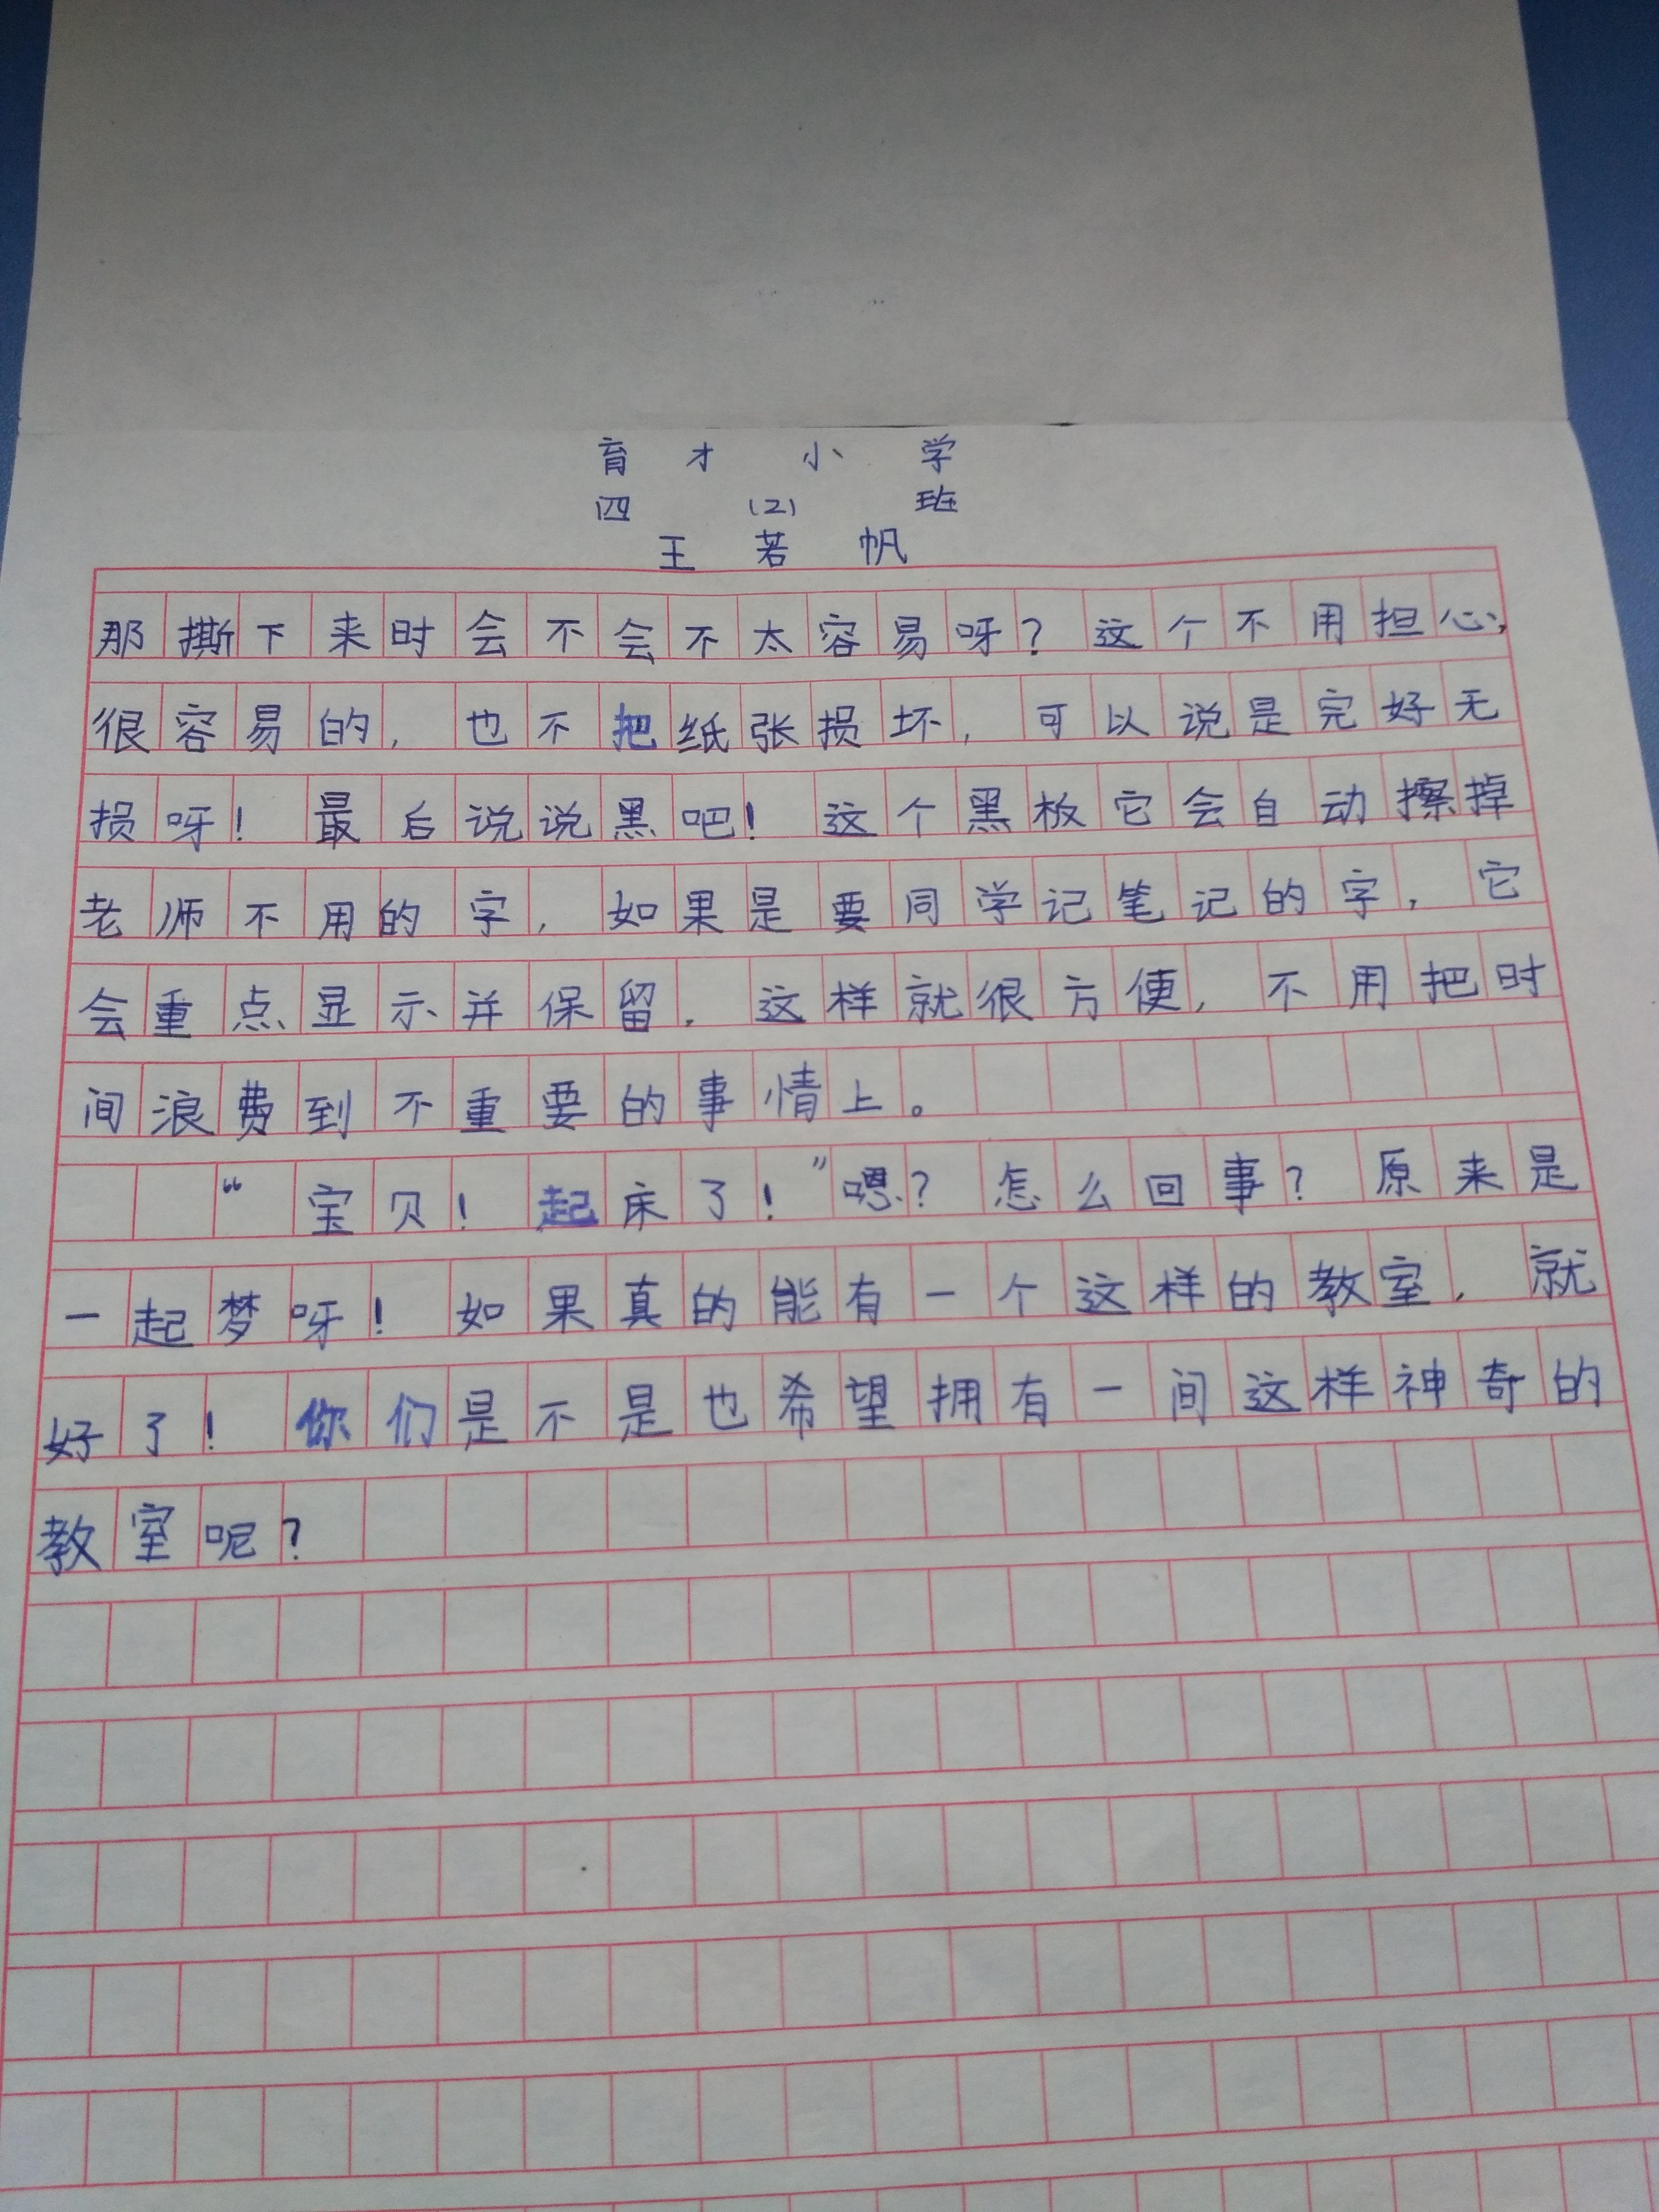 育才小学
四(2)班
王若帆
那撕下来时会不会不太容易呀？这个不用担心，
很容易的，也不把纸张损坏，可以说是完好无
损呀！最后说说黑吧！这个黑板它会自动擦掉
老师不用的字，如果是要同学记笔记的字，它
会重点显示并保留，这样就很方便，不用把时
间浪费到不重要的事情上。
“宝贝！起床了！”嗯？怎么回事？原来是
一起梦呀！如果真的能有一个这样的教室，就
好了！你们是不是也希望拥有一间这样神奇的
教室呢？